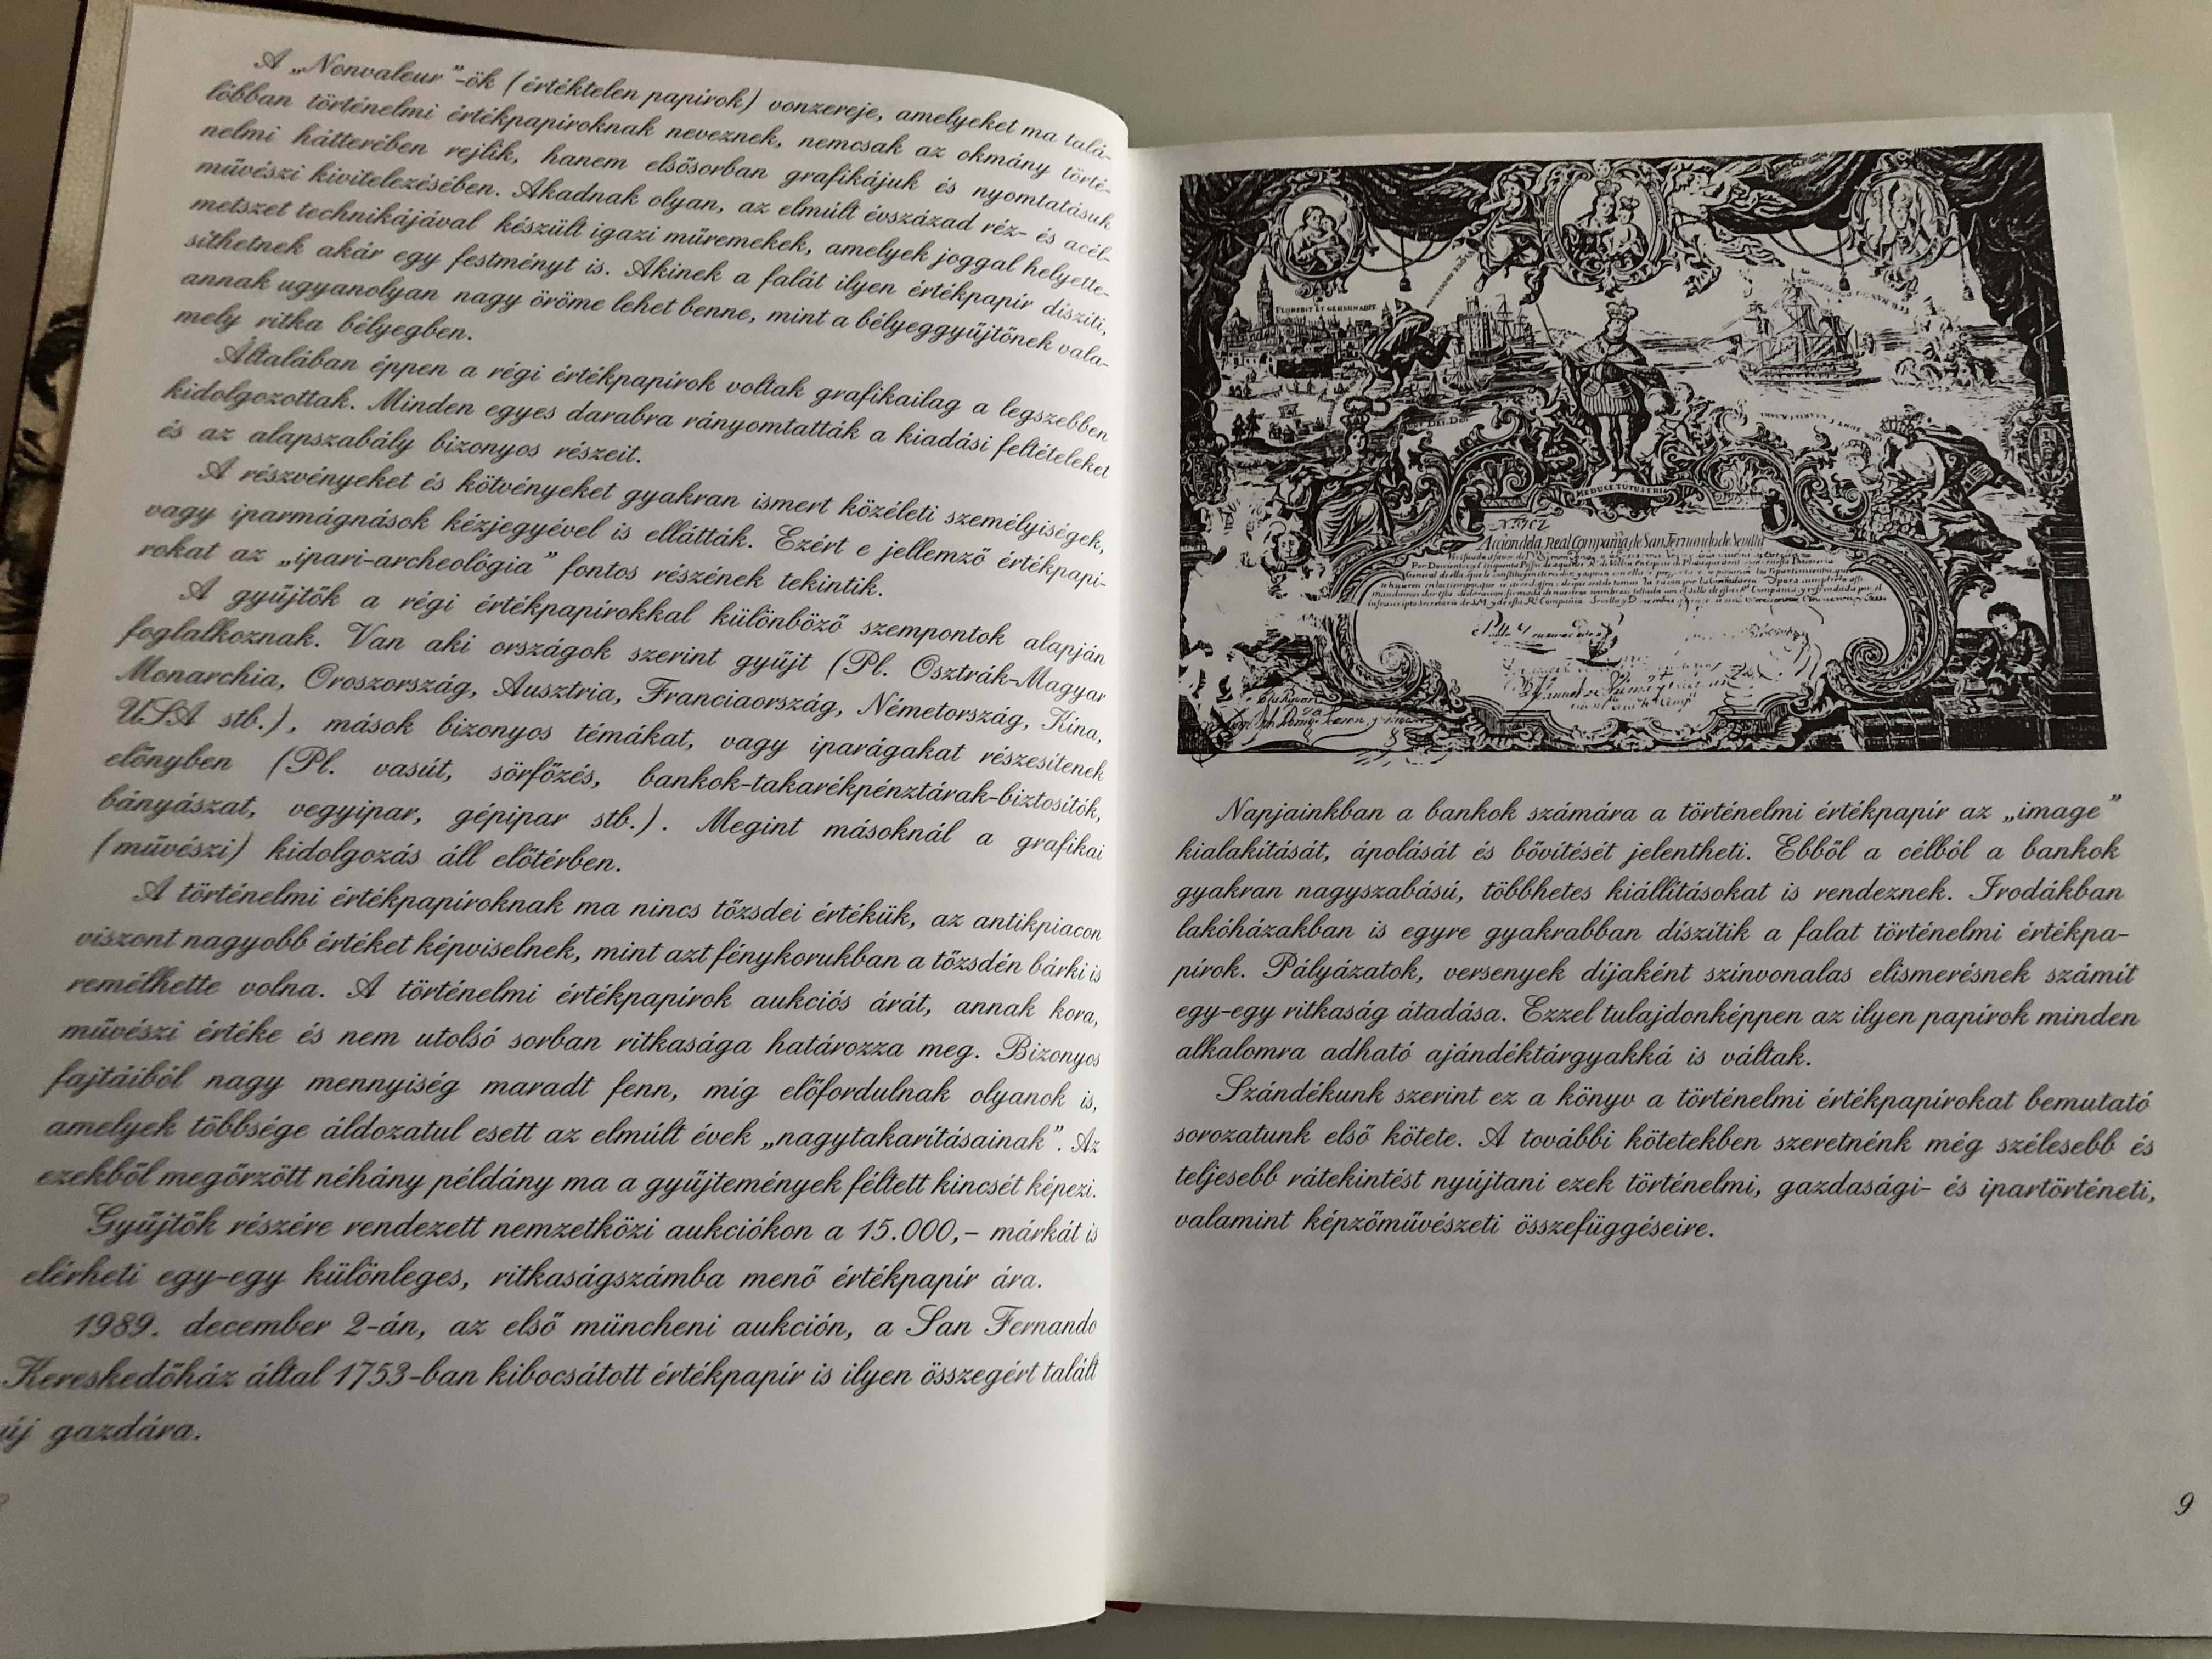 A „Nonvaleur”-ök (értéktelen papírok) vonzereje, amelyeket ma talá-
lóbban történelmi értékpapíroknak neveznek, nemcsak az okmány törté-
nelmi hátterében rejlik, hanem elsősorban grafikájuk és nyomtatásuk
művészi kivitelezésében. Akadnak olyan, az elmúlt évszázad réz- és acél-
metszet technikájával készült igazi műremekek, amelyek joggal helyette-
síthetnek akár egy festményt is. Akinek a falát ilyen értékpapír díszíti,
annak ugyanolyan nagy öröme lehet benne, mint a bélyeggyűjtőnek vala-
mely ritka bélyegben.
Általában éppen a régi értékpapírok voltak grafikailag a legszebben
kidolgozottak. Minden egyes darabra rányomtatták a kiadási feltételeket
és az alapszabály bizonyos részeit.
A részvényeket és kötvényeket gyakran ismert közéleti személyiségek,
vagy iparmágnások kézjegyével is ellátták. Ezért e jellemző értékpapí-
rokat az „ipari-archeológia” fontos részének tekintik.
A gyűjtők a régi értékpapírokkal különböző szempontok alapján
foglalkoznak. Van aki országok szerint gyűjt (Pl. Osztrák-Magyar
Monarchia, Oroszország, Ausztria, Franciaország, Németország, Kína,
USA stb.), mások bizonyos témákat, vagy iparágakat részesítenek
előnyben (Pl. vasút, sörfőzés, bankok-takarékpénztárak-biztosítók,
bányászat, vegyipar, gépipar stb.). Megint másoknál a grafikai
(művészi) kidolgozás áll előtérben.
A történelmi értékpapíroknak ma nincs tőzsdei értékük, az antikpiacon
viszont nagyobb értéket képviselnek, mint azt fénykorukban a tőzsdén bárki is
remélhette volna. A történelmi értékpapírok aukciós árát, annak kora,
művészi értéke és nem utolsó sorban ritkasága határozza meg. Bizonyos
fajtáiból nagy mennyiség maradt fenn, míg előfordulnak olyanok is,
amelyek többsége áldozatul esett az elmúlt évek „nagytakarításainak”. Az
ezekből megőrzött néhány példány ma a gyűjtemények féltett kincsét képezi.
Gyűjtők részére rendezett nemzetközi aukciókon a 15.000,- márkát is
elérheti egy-egy különleges, ritkaságszámba menő értékpapír ára.
1989. december 2-án, az első müncheni aukción, a San Fernando
Kereskedőház által 1753-ban kibocsátott értékpapír is ilyen összegért talált
új gazdára.
FLOREBIT ET GERMINABIT
ME DUCE TUTUS ERIS
Accion de la Real Compañia de San Fernando de Sevilla
Napjainkban a bankok számára a történelmi értékpapír az „image”
kialakítását, ápolását és bővítését jelentheti. Ebből a célból a bankok
gyakran nagyszabású, többhetes kiállításokat is rendeznek. Irodákban
lakóházakban is egyre gyakrabban díszítik a falat történelmi értékpa-
pírok. Pályázatok, versenyek díjaként színvonalas elismerésnek számít
egy-egy ritkaság átadása. Ezzel tulajdonképpen az ilyen papírok minden
alkalomra adható ajándéktárgyakká is váltak.
Szándékunk szerint ez a könyv a történelmi értékpapírokat bemutató
sorozatunk első kötete. A további kötetekben szeretnénk még szélesebb és
teljesebb rátekintést nyújtani ezek történelmi, gazdasági- és ipartörténeti,
valamint képzőművészeti összefüggéseire.
9